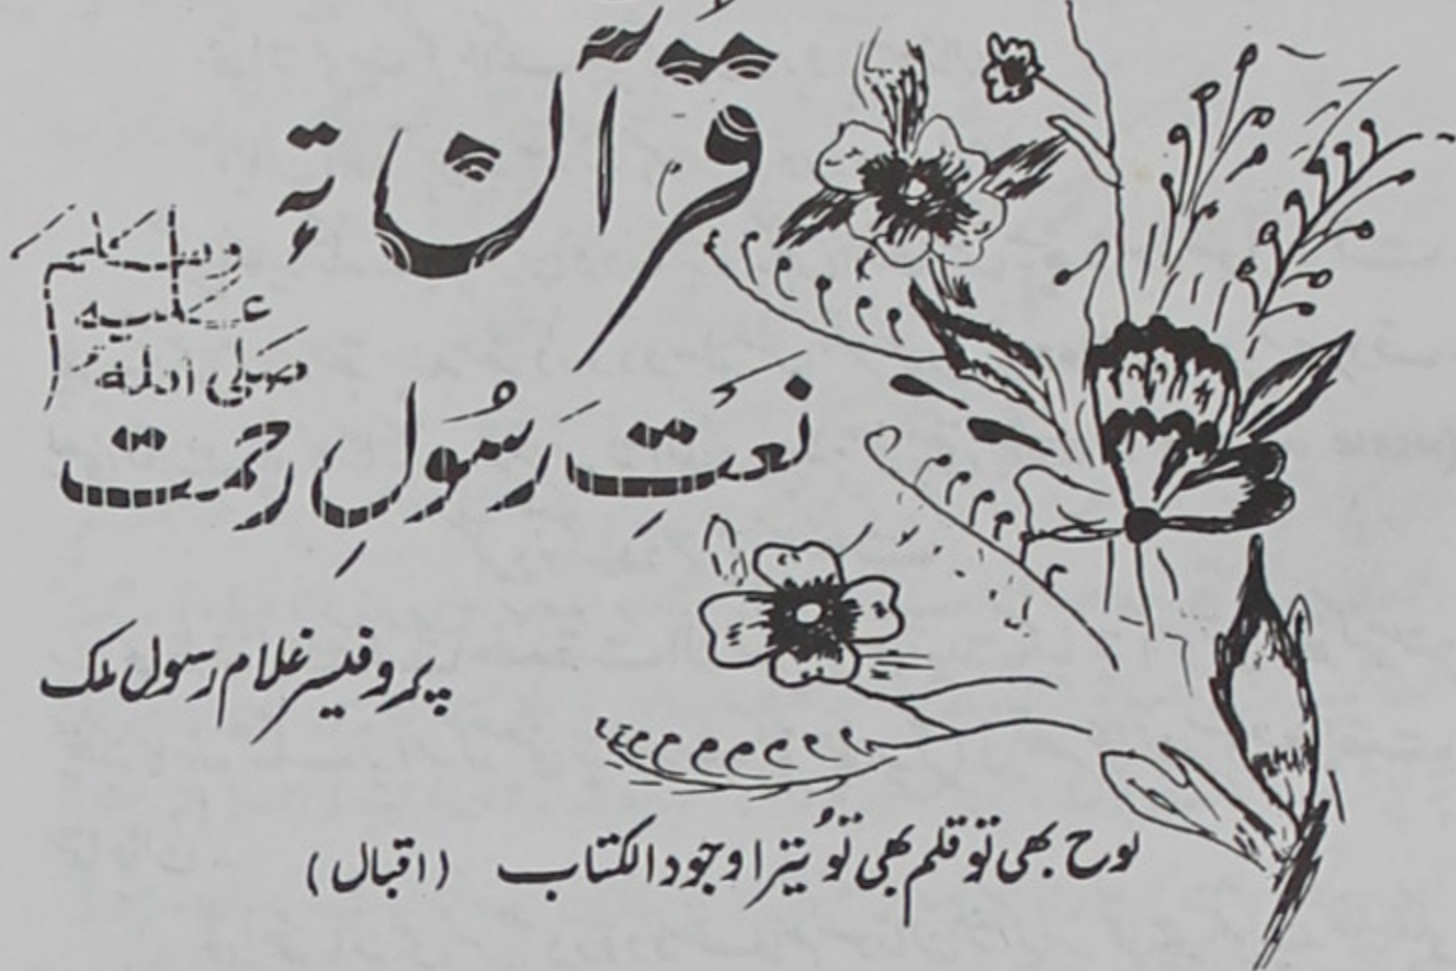 قرآن تہٕ
نعتِ رسُولِ رحمت
صلی اللہ
علیہ
وسلم
پروفیسر غلام رسول ملک
لوح بھی تو قلم بھی تُو تیرا وجود الکتاب (اقبال)